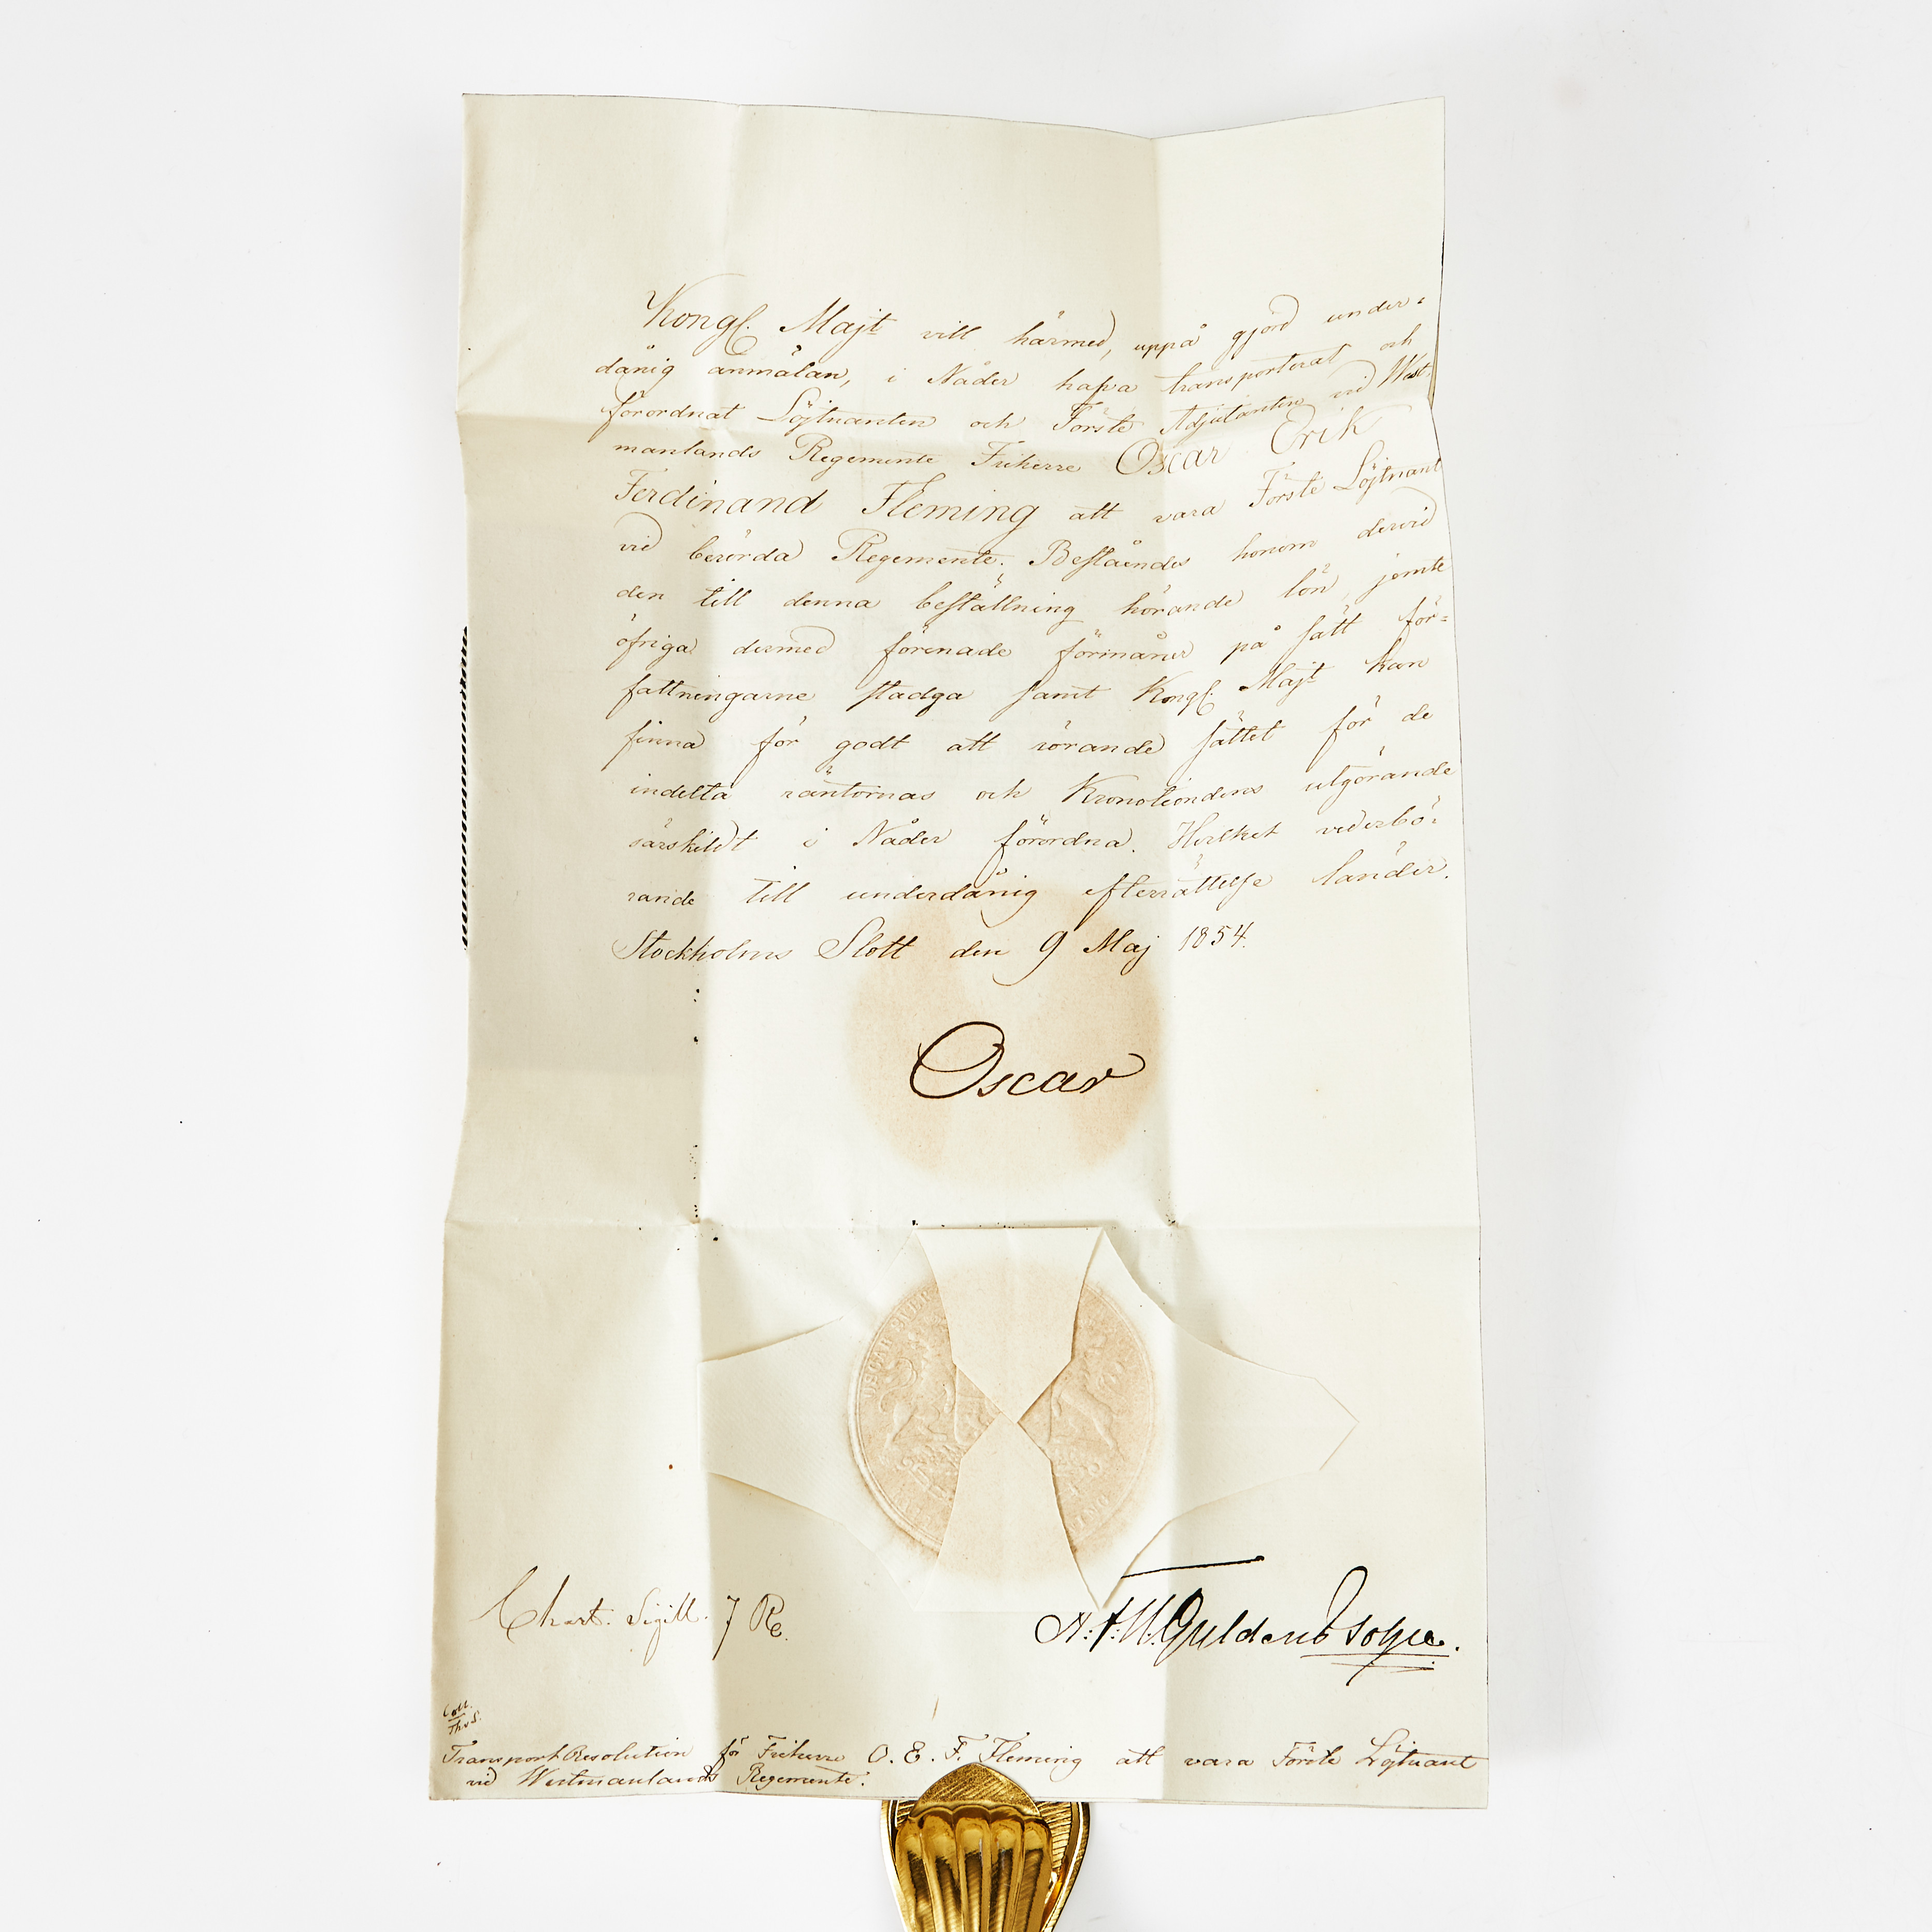 Kongl. Majt vill härmed, uppå gjord under-
dånig anmälan, i Nåder hafva transporterat och
förordnat Löjtnanten och Förste Adjutanten vid West-
manlands Regemente Friherre Oscar Erik
Ferdinand Fleming att vara Förste Löjtnant
vid berörda Regemente. Beståendes honom dervid
den till denna beställning hörande lön, jemte
öfriga dermed förenade förmåner på sätt för-
fattningarne stadga samt Kongl. Majt kan
finna för godt att rörande sättet för de
indelta räntornas och Kronotiondens utgörande
särskildt i Nåder förordna. Hvilket vederbö-
rande till underdånig efterrättelse länder.
Stockholms Slott den 9 Maj 1854.
Oscar
OSCAR
Chart. Sigill. 7 Rd.
N. F. W. Guldenstolpe.
Coll.
Transport Resolution för Friherre O. E. F. Fleming att vara Förste Löjtnant
vid Westmanlands Regemente.